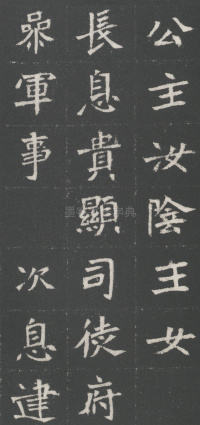 公主汝陰王女
長息貴顯司徒府
參軍事 次息建